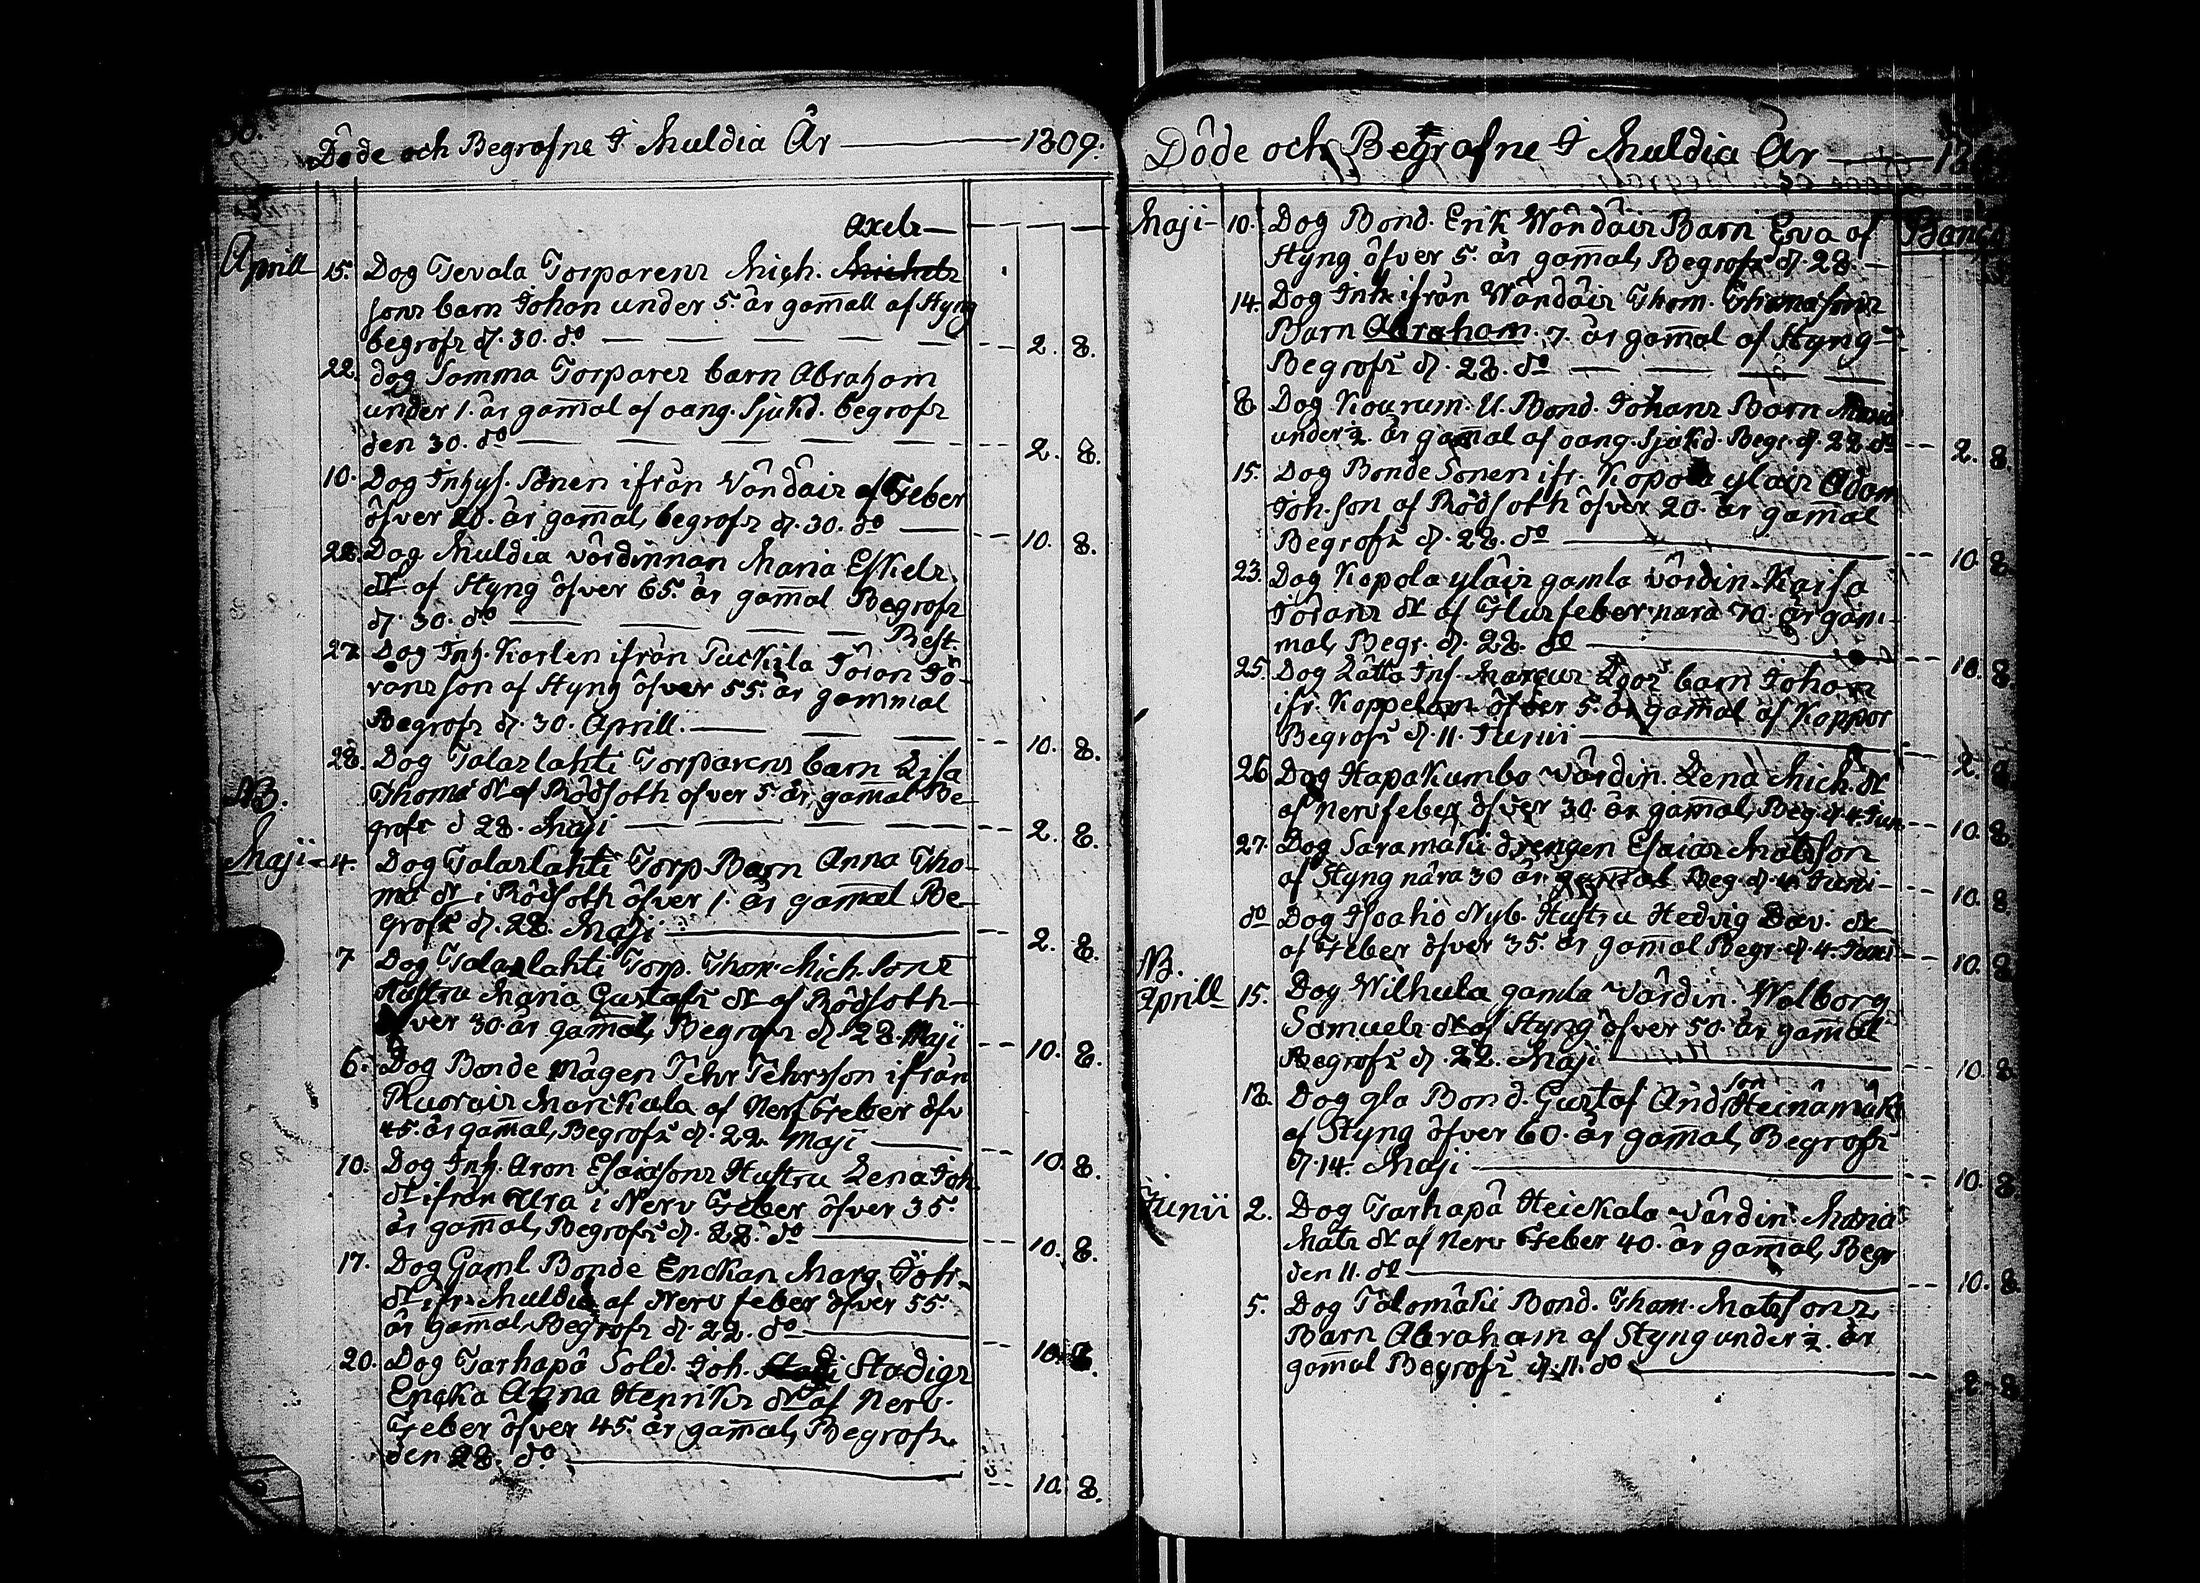 Döde och Begrafne I Muldia År — 1809.
Axels —
Aprill 15. Dog Jevala Torparens Mich. Michels
sons barn Johan under 5. år gamall af Styng
begrofs d. 30. do — 2. 8.
22. dog Somma Torpares barn Abraham
under 1. år gamal af oang. Sjukd. begrofs
den 30. do — 2. 8.
10. Dog Inhys. Sonen ifrån Vändäis af Feber
öfver 20. år gamal, begrofs d. 30. do — 10. 8.
28. Dog Muldia vördinnan Maria Eskels
dt af Styng öfver 65. år gamal Begrofs
d. 30. do — Best.
27. Dog Inh. Karlen ifrån Tuckila Jöran Jö-
rans son af Styng öfver 55. år gammal
Begrofs d. 30. Aprill. — 10. 8.
28. Dog Talaslahti Torparens barn Lisa
Thoms dt af Rödsoth öfver 5. år, gamal Be-
grofs d 28. Maji — 2. 8.
NB.
Maji 4. Dog Talaslahti Torp. Barn Anna Tho-
ma dt i Rödsoth öfver 1. år gamal Be-
grofs d. 28. Maji — 2. 8.
7. Dog Talaslahti Torp. Thom. Mich. Sons
Hustru Maria Gustafs dt af Rödsoth
öfver 30. år gamal, Begrofs d. 28. Maji — 10. 8.
6. Dog Bonde mågen Johr Jehrsson ifrån
Ruorais Marickala af Nerf Feber öfv
45. år gamal, Begrofs d. 22. Maji — 10. 8.
10. Dog Inh. Aron Esaiæsons Hustru Lena Joh.
dt ifrån Ura i Nerv Feber öfver 35.
år gamal, Begrofs d. 22. do — 10. 8.
17. Dog Gaml. Bonde Enckan Marg. Joh-
dt ifr. Muldia af Nerv feber öfver 55.
år gamal, Begrofs d. 22. do — 10. 8.
20. Dog Tarhapä Sold. Joh. Stadigs
Encka Anna Henriks dt af Nerv.
Feber öfver 45. år gamal, Begrofs
den 28. do — 10. 8.
Döde och Begrafne I Muldia År —
Banco
Maji 10. Dog Bond. Erik Wändäis Barn Eva af
Styng öfver 5. år gamal, Begrofs d. 28. —
14. Dog Inh. ifrån Wändäis Thom. Thomasons
Barn Abraham. 7. år gamal af Styng
Begrofs d. 28. do —
8. Dog Kourum. U. Bond. Johans Barn
under 2. år gamal af oang. Sjukd. Begr. d. 22. do — 2. 8.
15. Dog Bonde Sonen ifr. Kopola yläis Adam
Joh. son af Rödsoth öfver 20. år gamal
Begrofs d. 28. do — 10. 8.
23. Dog Kopola yläis gamla vördin. Kaisa
Jörans dt af Flusfeber nära 70. år gam-
mal, Begr. d. 28. do — 10. 8.
25. Dog Lätta Inh. Marcus barn Johan
ifr. Koppelom öfver 5. år gamal af Koppor
Begrofs d. 11. Junii — 2. 8.
26. Dog Hapakumbo vördin. Lena Mich. dt
af Nervfeber öfver 30. år gamal, Beg. d. 4. Jun — 10. 8.
27. Dog Saramäki drengen Esaias Matsson
af Styng nära 30 år gamal Beg. d. 4. Juni — 10. 8.
do Dog Isoaho Nyb. Hustru Hedvig Dav. dt
af Feber öfver 35. år gamal Begr. d. 4. Juni — 10. 8.
NB.
Aprill 15. Dog Wilhula gamla vördin. Walborg
Samuels dt af Styng öfver 50. år gamal
Begrofs d. 22. Maji — 10. 8.
18. Dog gla Bond. Gustaf Andsson Heinämäki
af Styng öfver 60. år gamal, Begrofs
d. 14. Maji — 10. 8.
Junii 2. Dog Tarhapä Heickala vördin. Maria
Mats dt af Nerv Feber 40. år gamal, Begr
den 11. do — 10. 8.
5. Dog Tälomäki Bond. Tham. Matssons
Barn Abraham af Styng under 2. år
gamal Begrofs d. 11. do — 2. 8.